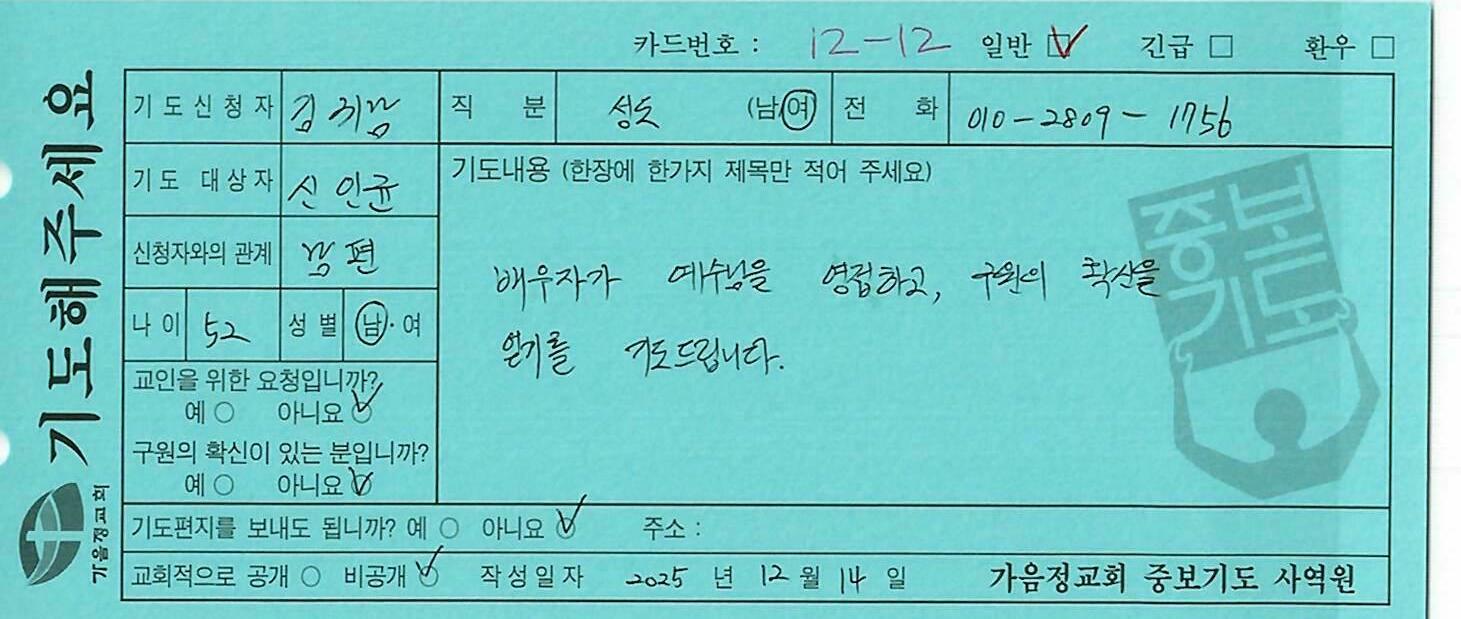 기도해주세요
가음정교회
카드번호 : 12-12 일반 긴급 환우
기도신청자 김귀남 직 분 성도 (남/여) 전 화 010-2809-1756
기도 대상자 신인균
신청자와의 관계 남편
나이 52 성별 남·여
교인을 위한 요청입니까?
예 아니요
구원의 확신이 있는 분입니까?
예 아니요
기도내용 (한장에 한가지 제목만 적어 주세요)
배우자가 예수님을 영접하고, 구원의 확신을
얻기를 기도드립니다.
중보
기도
기도편지를 보내도 됩니까? 예 아니요 주소 :
교회적으로 공개 비공개 작성일자 2025 년 12 월 14 일 가음정교회 중보기도 사역원